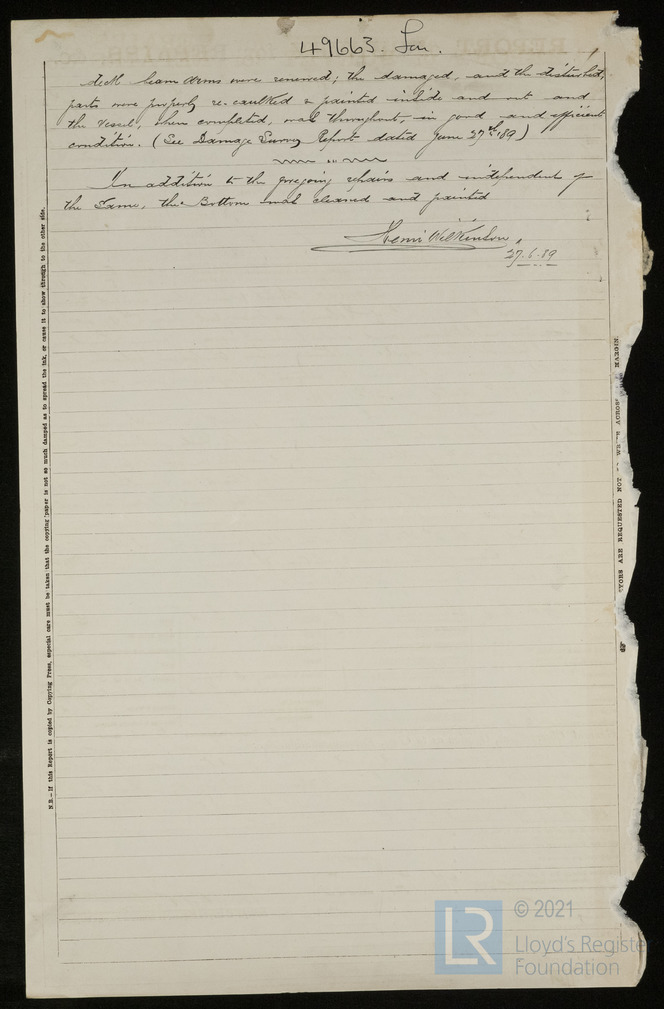 49663. Lon.
deck beam arms were renewed; the damaged, and the disturbed,
parts were properly re-caulked & painted inside and out and
the vessel, when completed, was throughout, in good and efficient
condition. (See Damage Survey Report dated June 27th '89)
In addition to the foregoing repairs and independent of
the same, the Bottom was cleaned and painted
Henri Wilkinson
27.6.89
N.B.—If this Report is copied by Copying Press, especial care must be taken that the copying paper is not so much damped as to spread the ink, or cause it to show through to the other side.
YORS ARE REQUESTED NOT
ACROSS
© 2021
LR
Lloyd's Register
Foundation